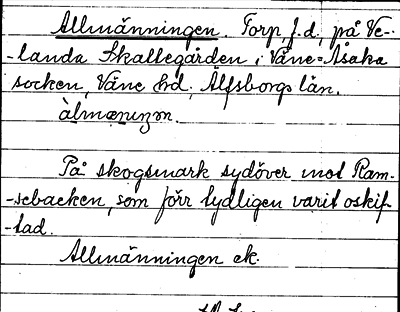 Allmänningen. Torp, f.d., på Ve-
-landa Skallegården i Väne-Åsaka
socken, Väne hd, Älfsborgs län.
àlmænıŋən.
På skogsmark sydöver mot Ram-
-sebacken, som förr tydligen varit oskif-
-tad.
Allmänningen ek.